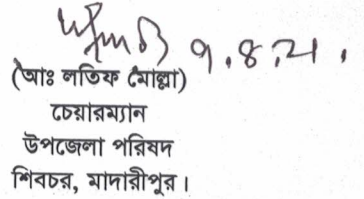 ৭.৪.২১.
(আঃ লতিফ মোল্লা)
চেয়ারম্যান
উপজেলা পরিষদ
শিবচর, মাদারীপুর।